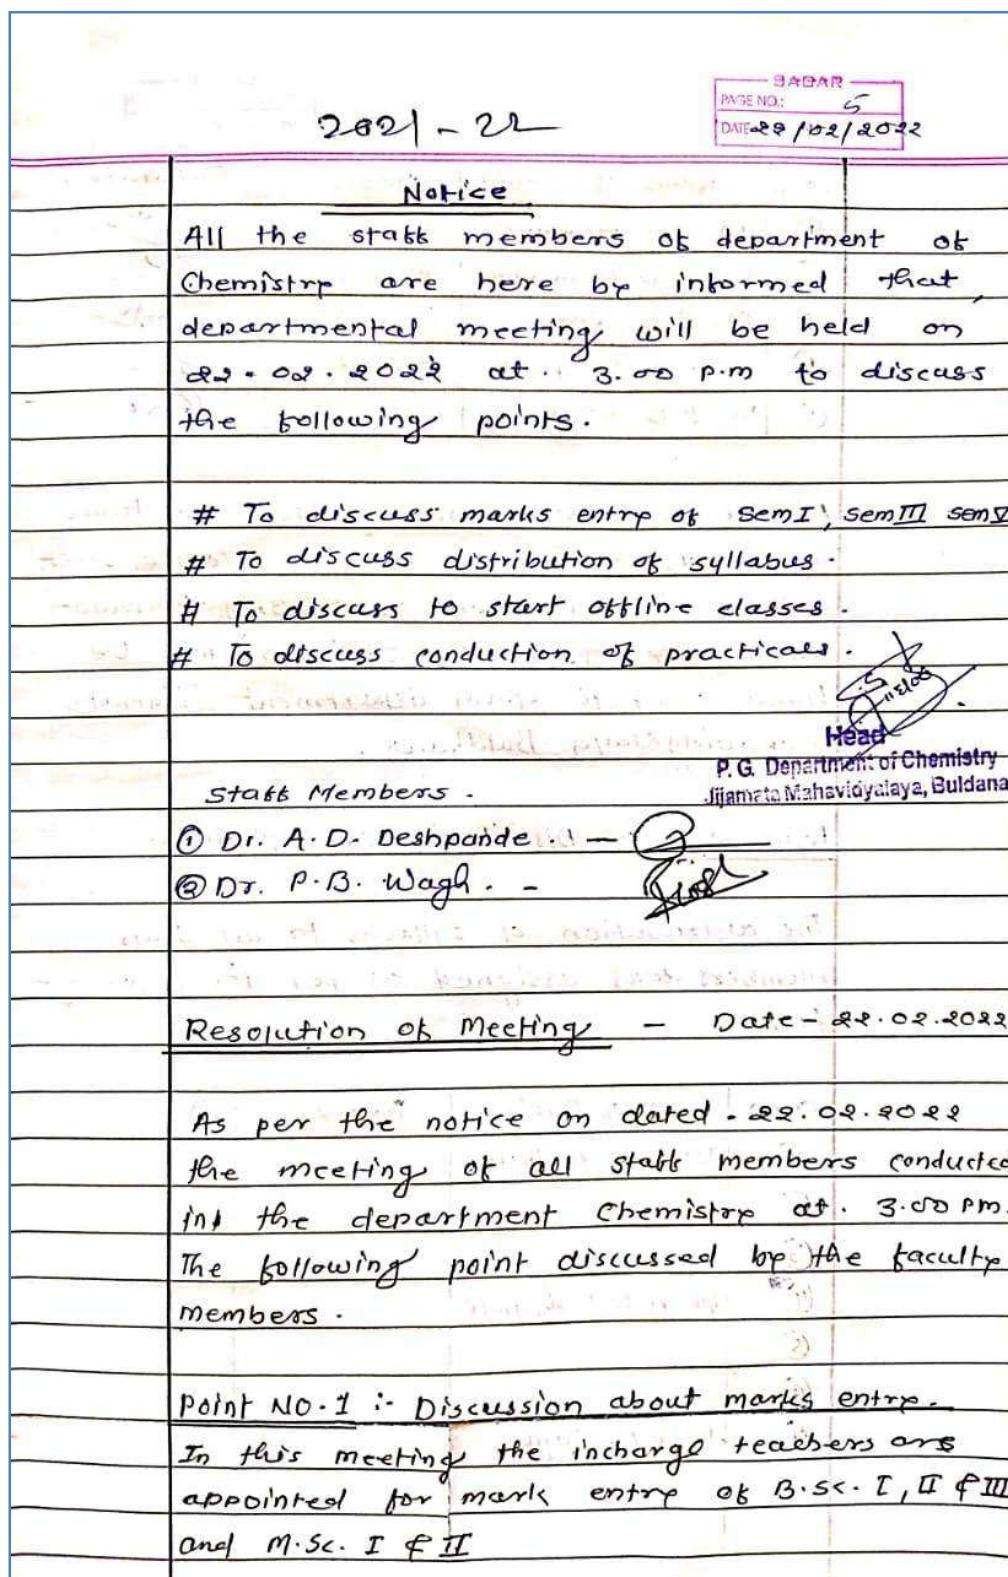 SADAR
PAGE NO.: 5
2021 - 22
DATE 22/02/2022
Notice
All the staff members of department of
Chemistry are here by informed that,
departmental meeting will be held on
22.02.2022 at. 3.00 p.m to discuss
the following points.
# To discuss marks entry of sem I, sem III sem V
# To discuss distribution of syllabus.
# To discuss to start offline classes.
# To discuss conduction of practicals.
Head
P. G. Department of Chemistry
Jijamata Mahavidyalaya, Buldana
Staff Members.
① Dr. A.D. Deshpande. -
② Dr. P.B. Wagh. -
Resolution of Meeting - Date - 22.02.2022
As per the notice on dated - 22.02.2022
the meeting of all staff members conducted
in the department Chemistry at. 3.00 pm.
The following point discussed by the faculty
members.
Point No.1 :- Discussion about marks entry.
In this meeting the incharge teachers are
appointed for mark entry of B.Sc. I, II & III
and M.Sc. I & II